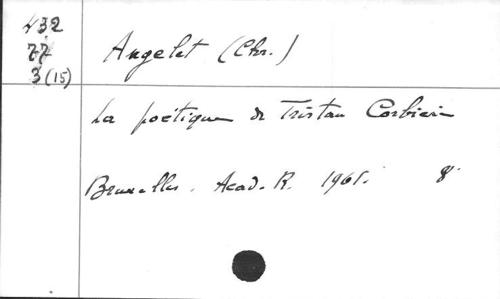 432
77
3(15)
Angelet (Chr.)
La poétique de Tristan Corbière
Bruxelles. Acad. R. 1961. 8°